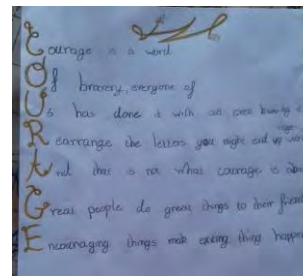 Courage is a word
Of bravery, everyone of
Us has done it with an
Rearrange the letters you might end up
And that is not what courage is
Great people do great things to their
Encouraging things make exciting thing